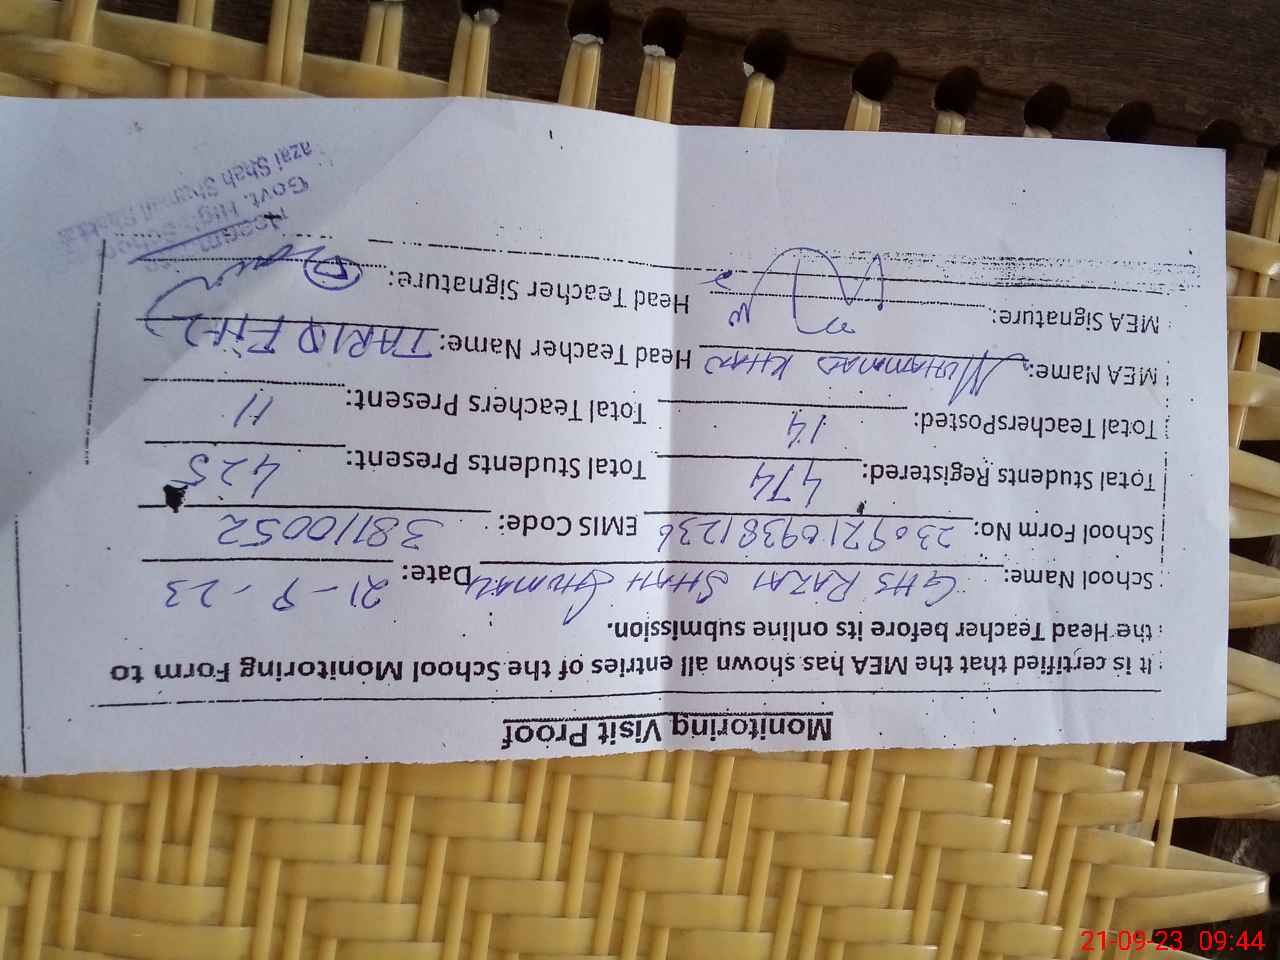 Monitoring Visit Proof
It is certified that the MEA has shown all entries of the School Monitoring Form to
the Head Teacher before its online submission.
School Name: GHS RAZAI SHAH SHUMALI Date: 21-9-23
School Form No: 23092109381236 EMIS Code: 38110052
Total Students Registered: 474 Total Students Present: 425
Total TeachersPosted: 14 Total Teachers Present: 11
MEA Name: MUHAMMAD KHAN Head Teacher Name: TARIQ
MEA Signature: Head Teacher Signature:
Govt. High
azai Shah Shumali
21-09-23 09:44